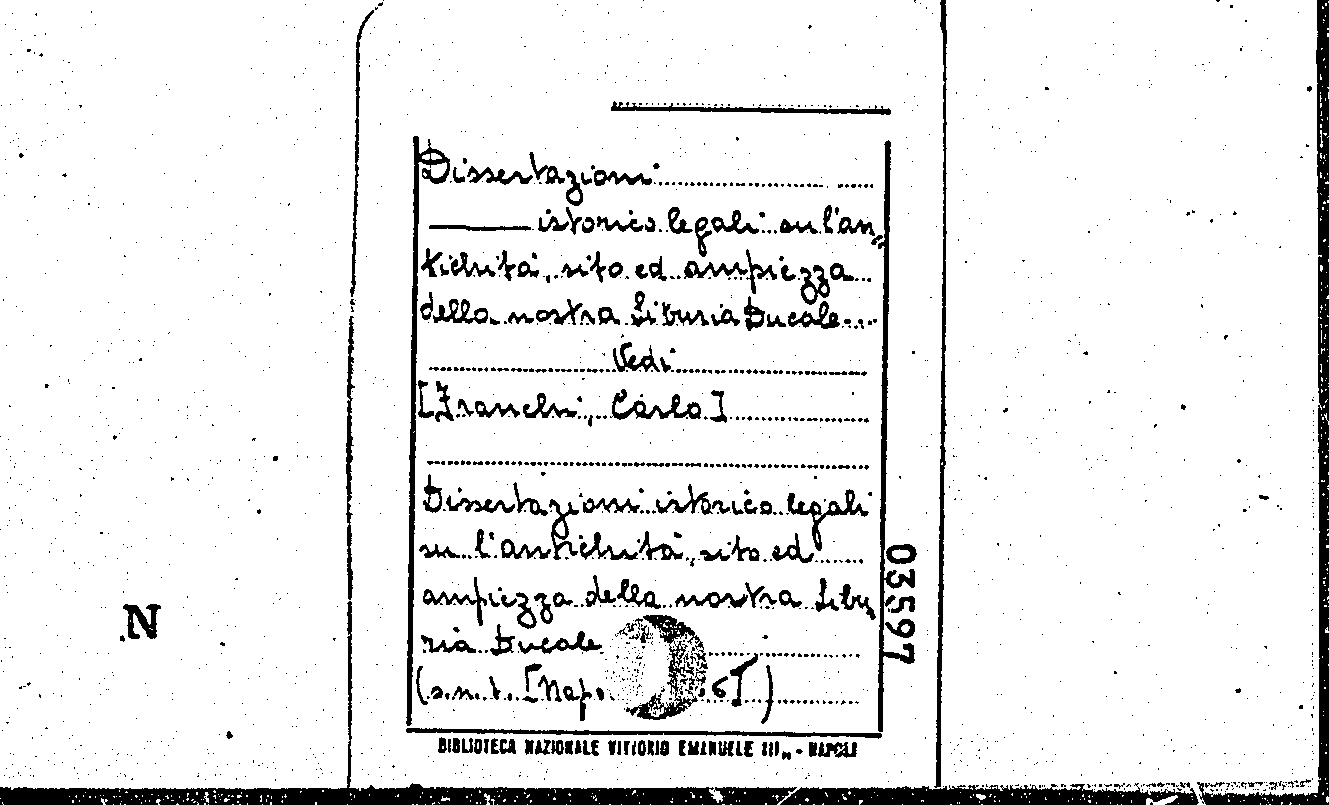 Dissertazioni
istorico legali su l'an„
tichità, sito ed ampiezza
della nostra Liburia Ducale
Vedi
[Franchi, Carlo]
Dissertazioni istorico legali
su l'antichità, sito ed
ampiezza della nostra Libu„
ria Ducale
(s.n.t. [Nap 6])
BIBLIOTECA NAZIONALE VITTORIO EMANUELE III„ - NAPOLI
03597
N